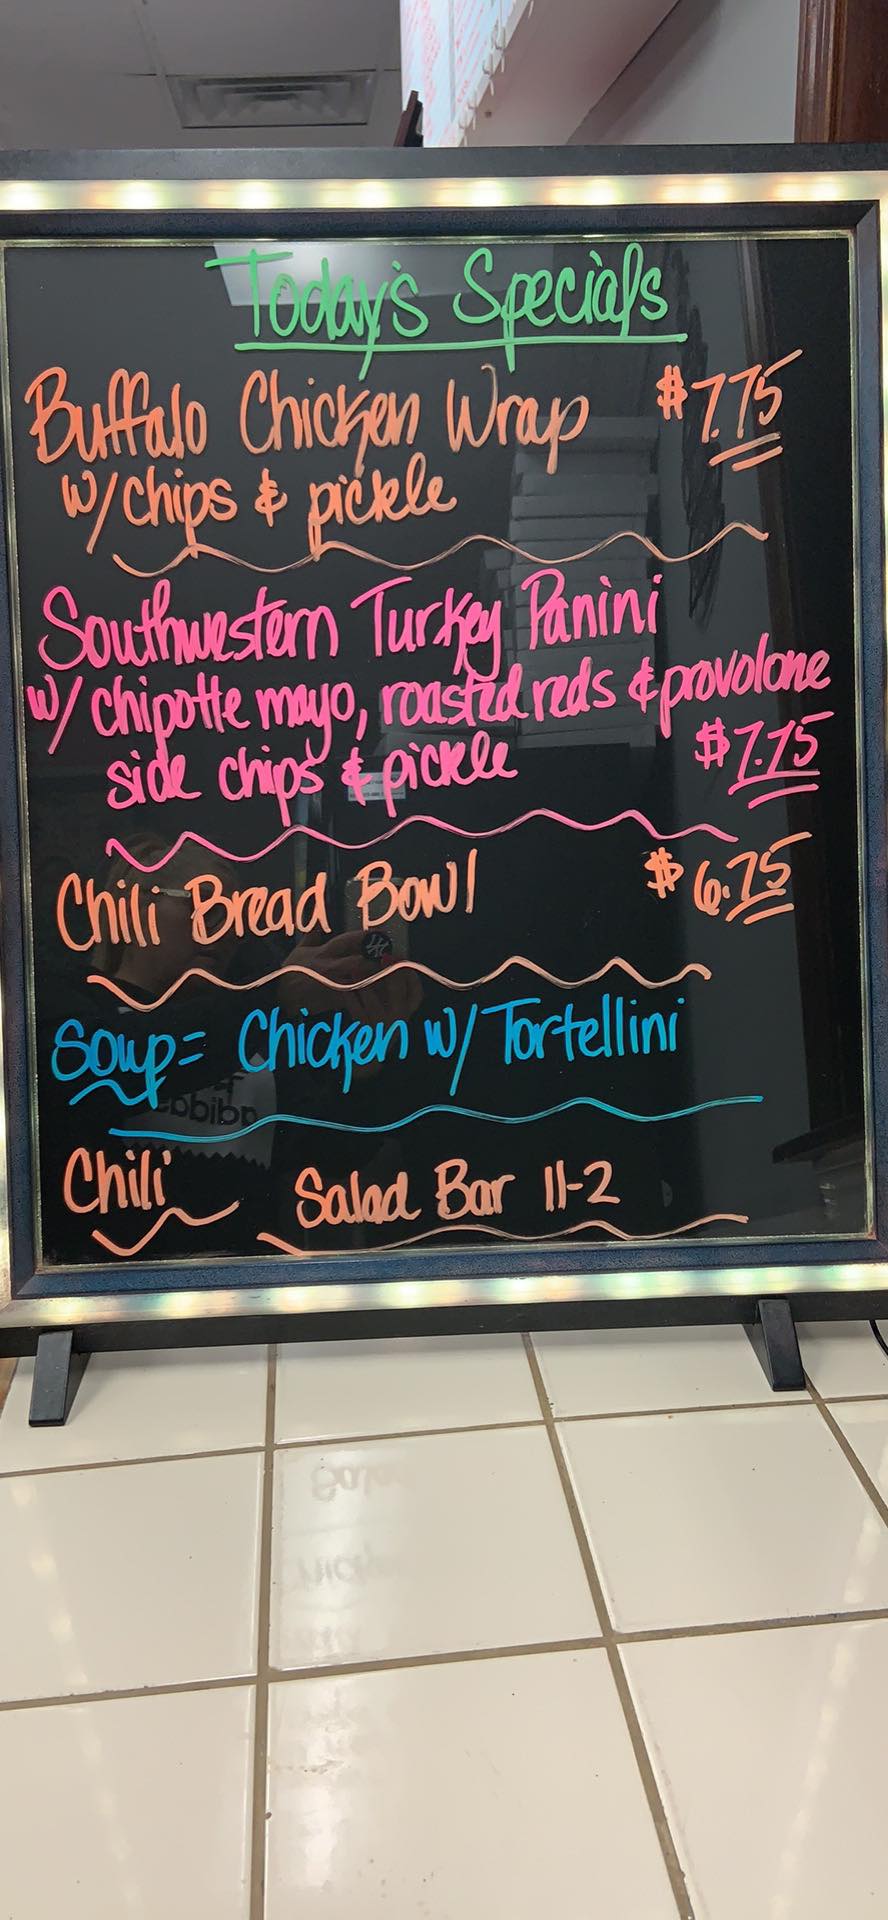 Today's Specials
Buffalo Chicken Wrap $7.75
w/chips & pickle
Southwestern Turkey Panini
w/ chipotle mayo, roasted reds & provolone
side chips & pickle $7.75
Chili Bread Bowl $6.75
Soup= Chicken w/ Tortellini
Chili Salad Bar 11-2